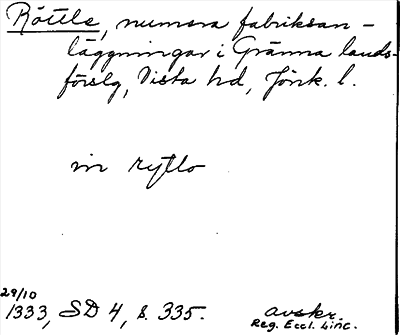 Röttle, numera fabriksan-
läggningar i Gränna lands-
förslg, Vista hd, Jönk. l.
in rytlo
29/10
1333, SD 4, s. 335.
avskr.
Reg. Eccl. Linc.